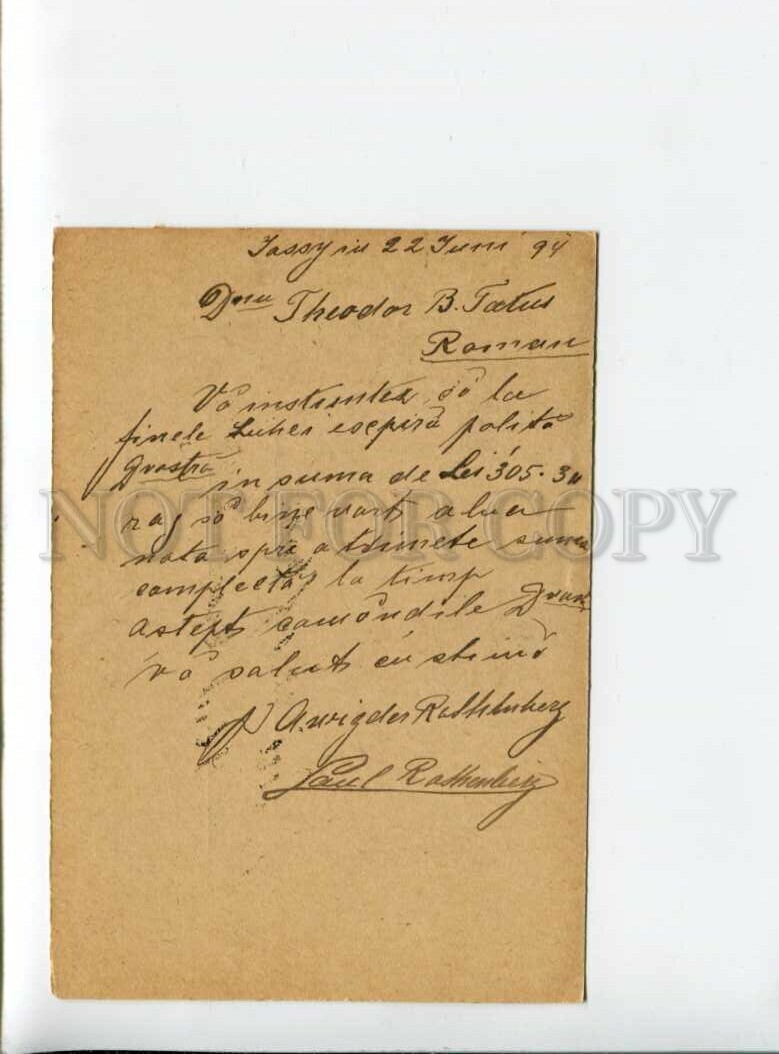 Jassy in 22 Juni 94
Dnu Theodor B. Tatus
Roman
Vă instiintez că la
finele Luhei escpiră polită
Dvostră in suma de Lei 305.30
rog să bine voiți a lua
notă spre a trimete suma
complectă la timp
Astept comăndile Dvostră
Vă salut cu stimă
p Awigdor Rothenberg
Paul Rothenberg
NOT FOR COPY